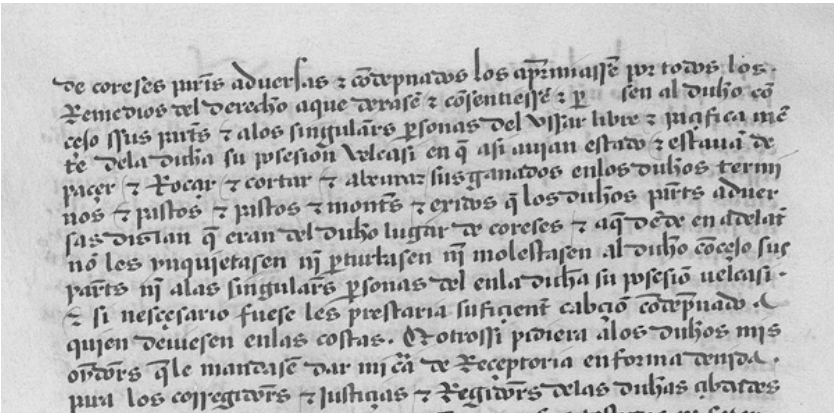 de coreses ptēs adversas & cōdepnados los apīmiassē por todos los
Remedios del derecho a que dexasē & cōsentiessē & p sen al dicho cō
cejo ssus ptēs & a los singulārs psonas del ussar libre & pacifica mē
te dela dicha su posesiōn velcasi en q̄ asi avian estado & estavā de
paçer & Roçar & cortar & abeurar sus ganados enlos dichos termi
nos & pastos & pastos & montēs & exidos q̄ los dichos partēs adver
sas disian q̄ eran del dicho lugar de coreses & a q̄ dēde en adelāt
nō les ynquietasen nī pturbasen nī molestasen al dicho cōcejo sus
partēs nī alas singulārs psonas del enla dicha su posesiō velcasi
& si nesçesario fuese les prestaria sufiçient cabçiō cōdepnādo a
quien deviesen enlas costas. E otrossi pidiera alos dichos mis
oydorēs q̄ le mandasē dar mi cārta de Receptoria en forma devida
para los corregidorēs & justiçias & Regidorēs delas dichas çibdades